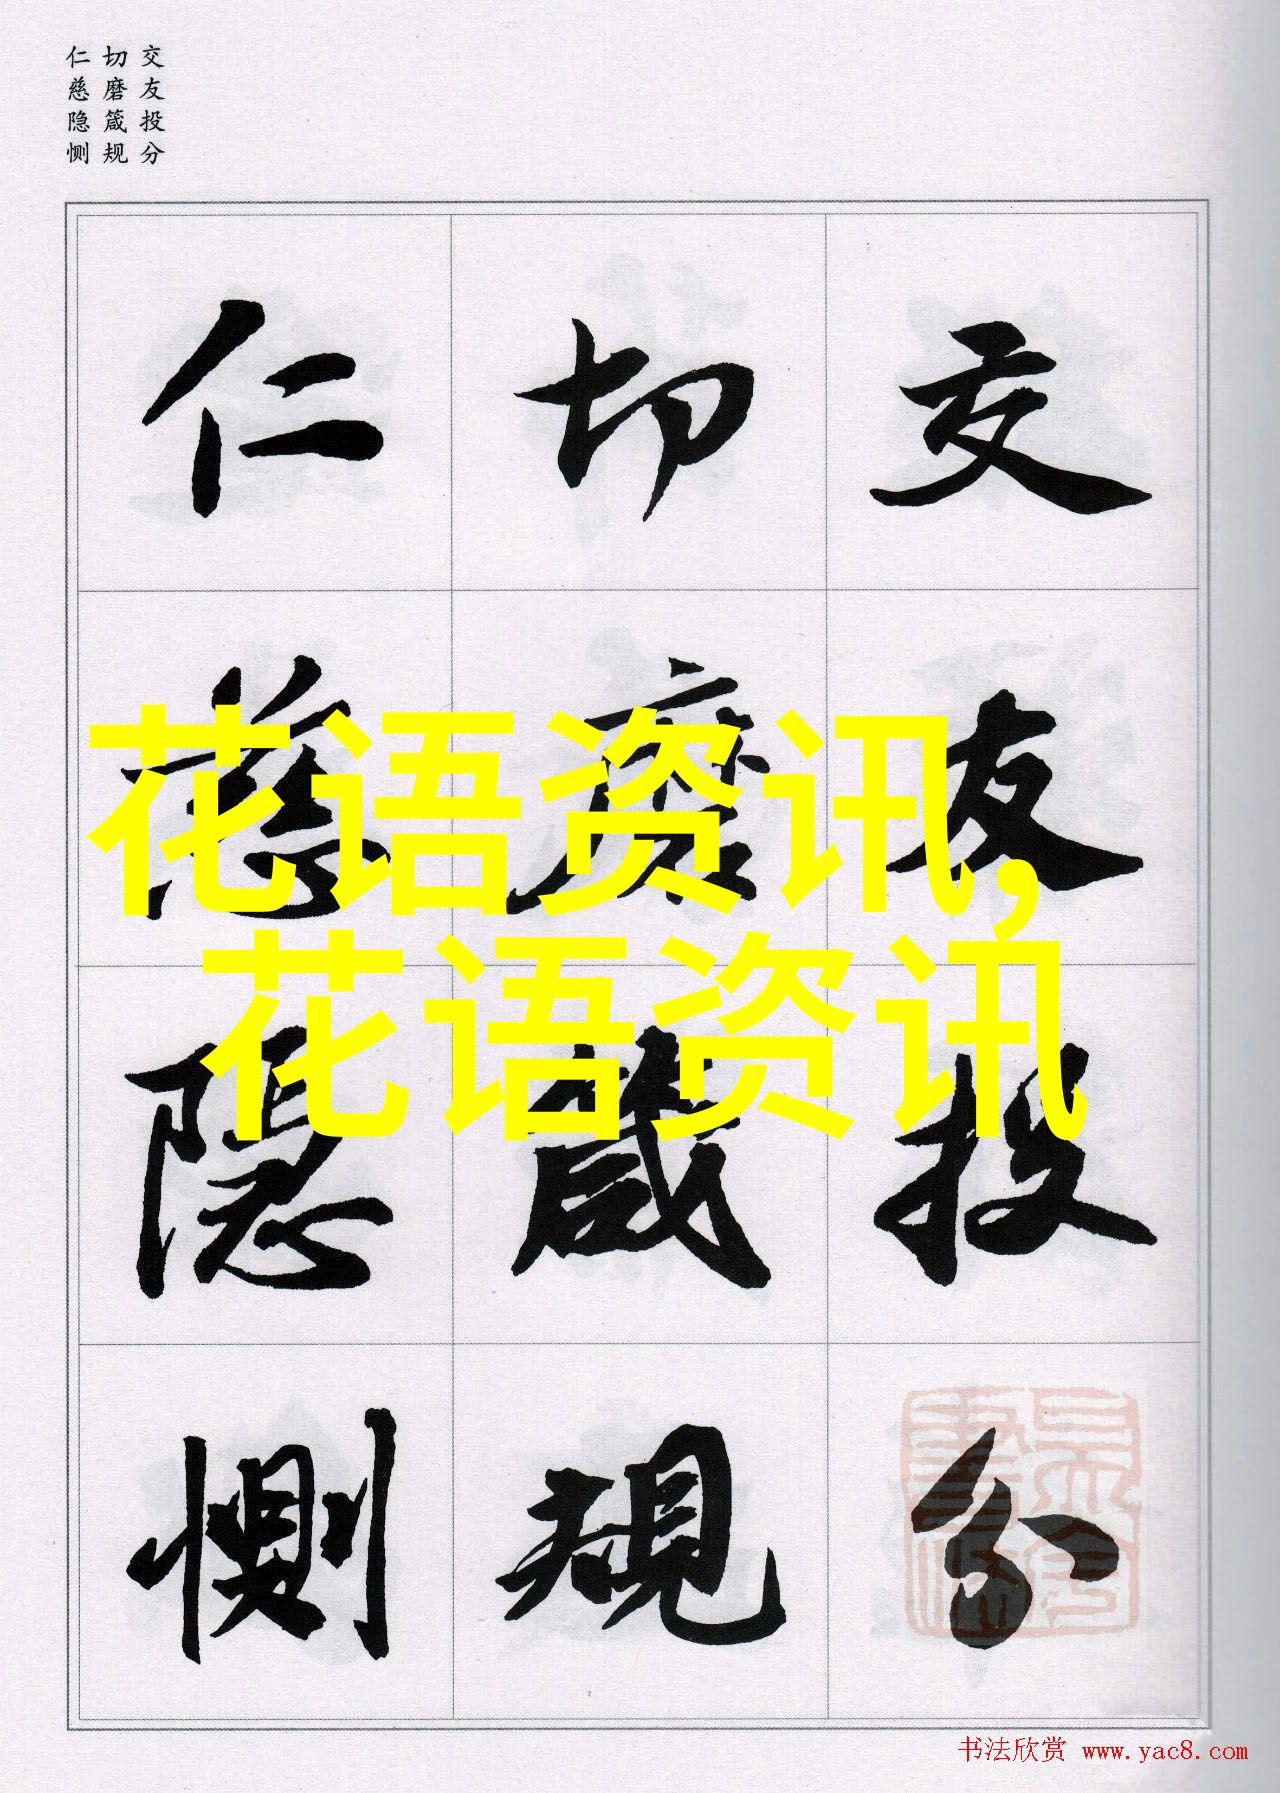 交友投分
切磨箴规
仁慈隐恻
交友投分
切磨箴規
仁慈隱惻
花语资讯,
花语资讯
书法欣赏 www.yac8.com